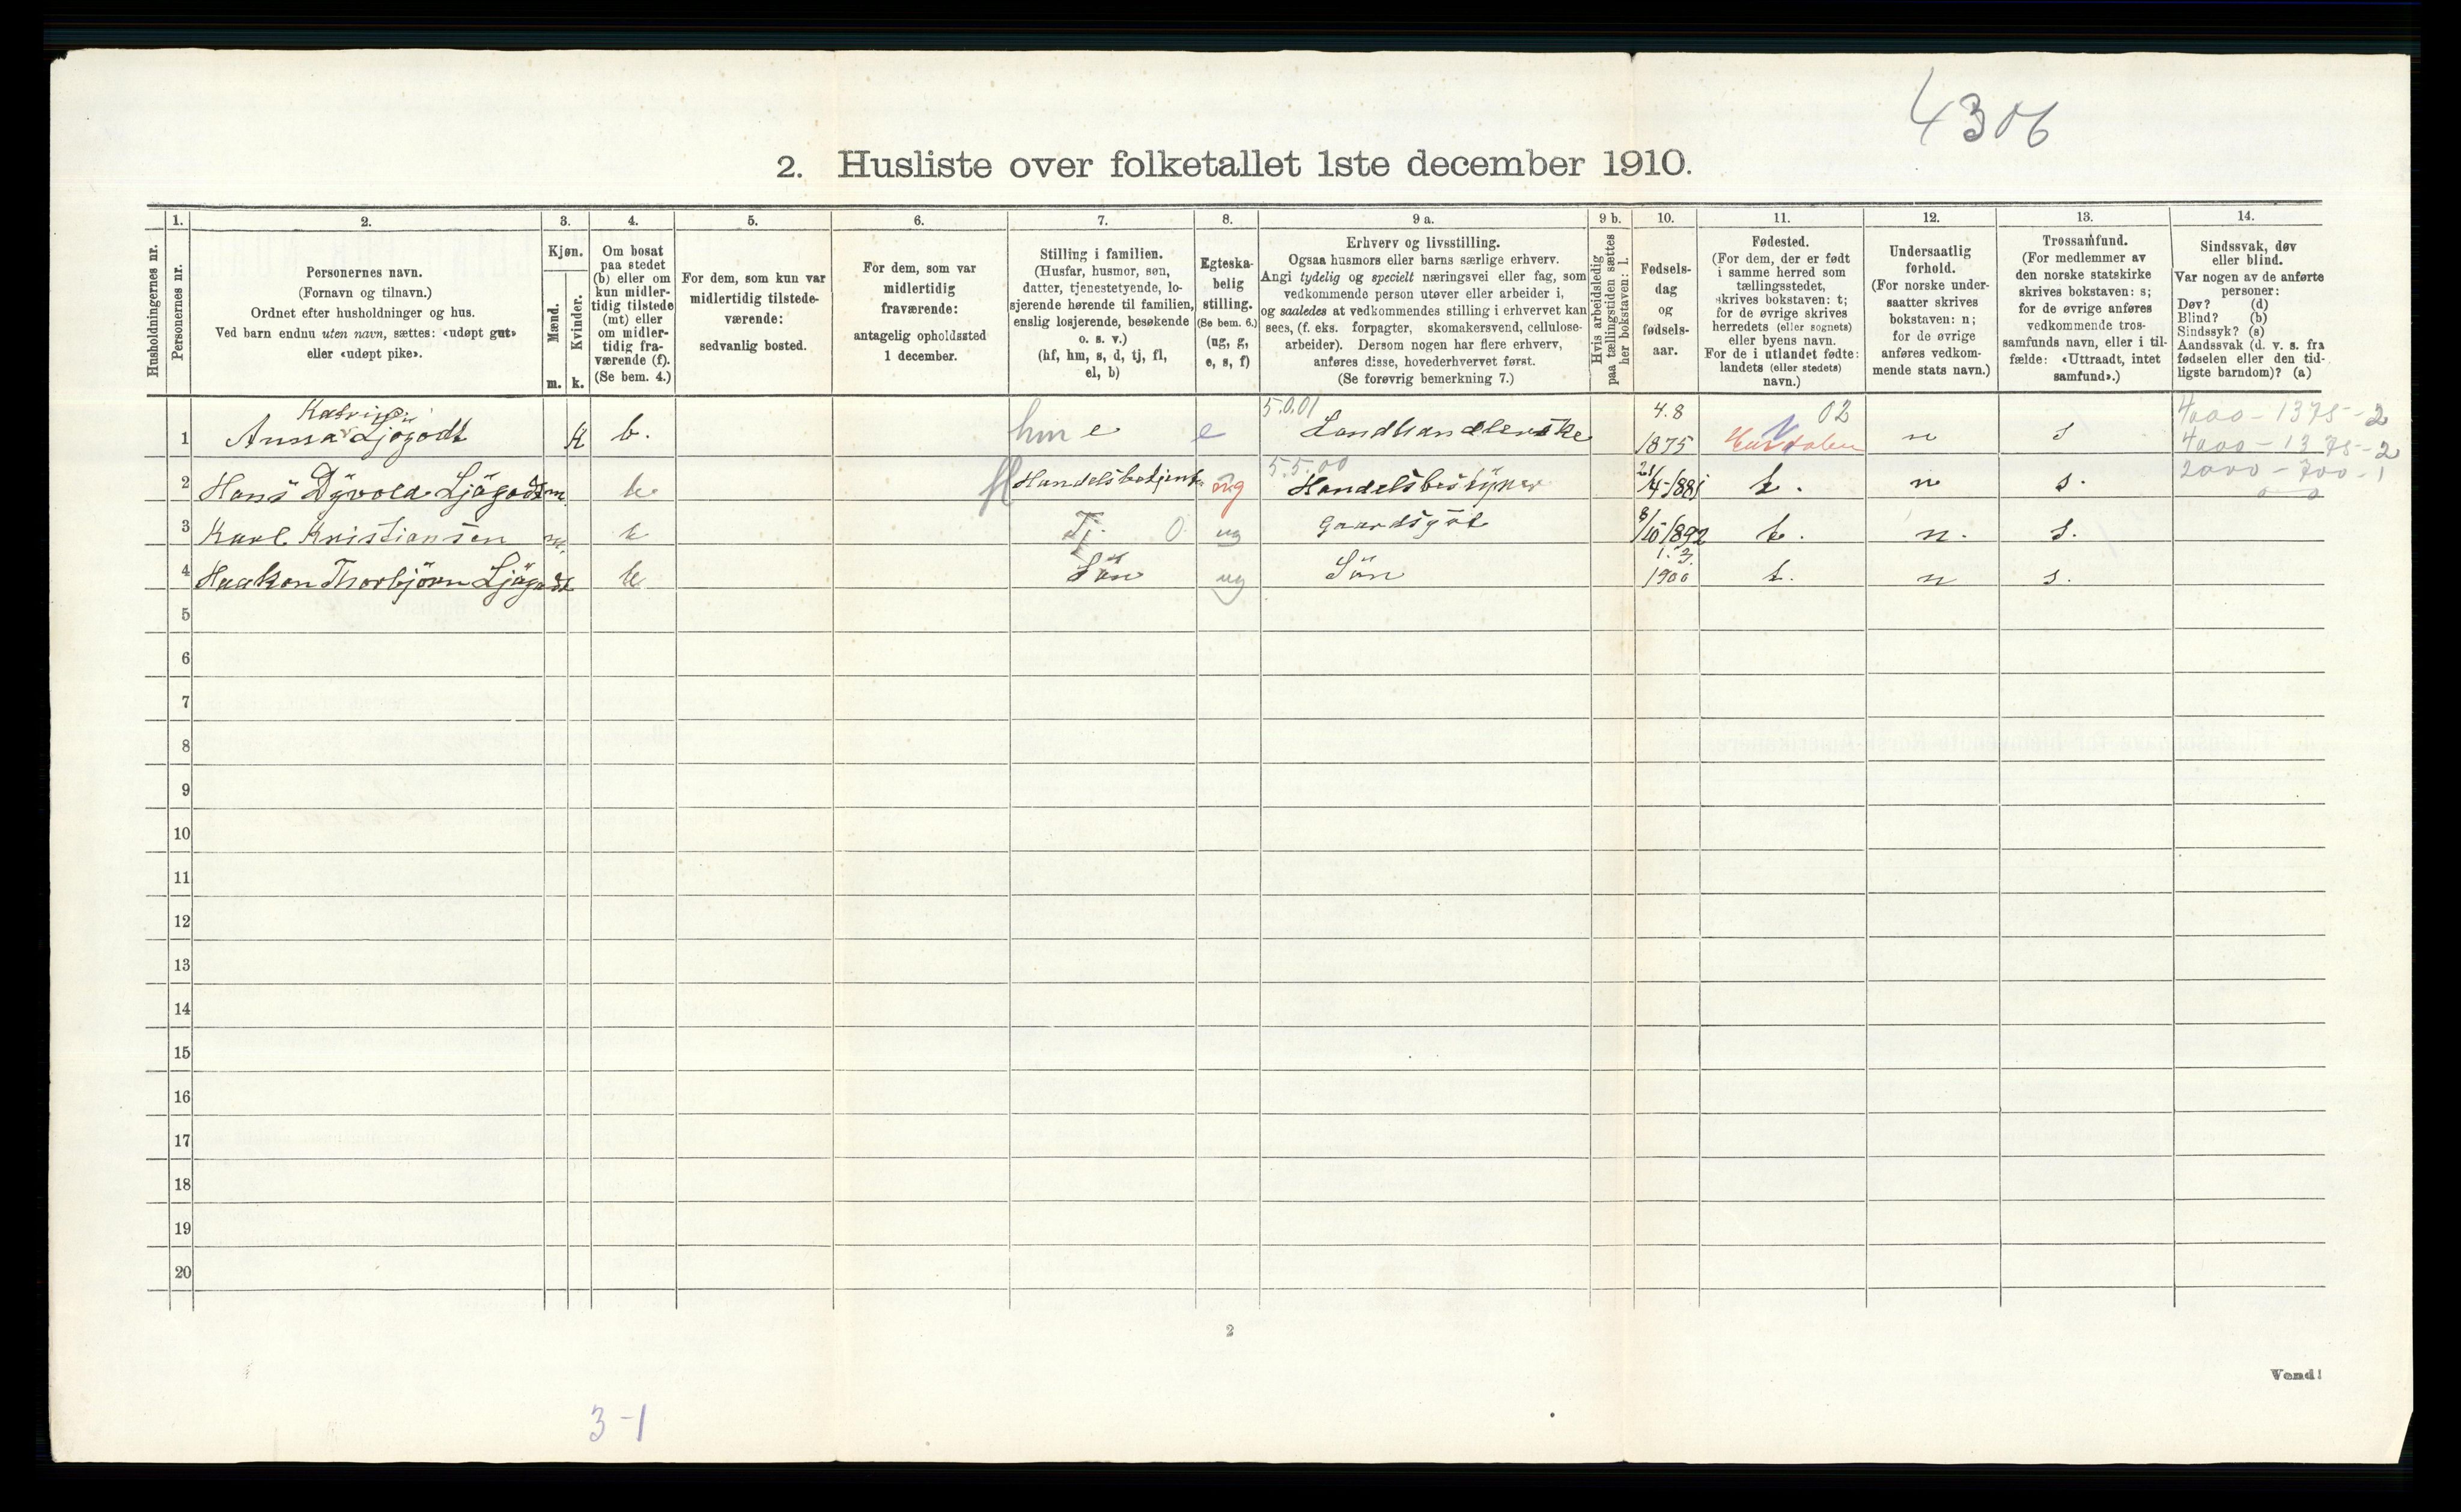 4306
2. Husliste over folketallet 1ste december 1910.
Husholdningernes nr.
1.
Personernes nr.
2.
Personernes navn.
(Fornavn og tilnavn.)
Ordnet efter husholdninger og hus.
Ved barn endnu uten navn, sættes: «udøpt gut»
eller «udøpt pike».
3.
Kjøn.
Mænd.
Kvinder.
m. k.
4.
Om bosat
paa stedet
(b) eller om
kun midler-
tidig tilstede
(mt) eller
om midler-
tidig fra-
værende (f).
(Se bem. 4.)
5.
For dem, som kun var
midlertidig tilstede-
værende:
sedvanlig bosted.
6.
For dem, som var
midlertidig
fraværende:
antagelig opholdssted
1 december.
7.
Stilling i familien.
(Husfar, husmor, søn,
datter, tjenestetyende, lo-
sjerende hørende til familien,
enslig losjerende, besøkende
o. s. v.)
(hf, hm, s, d, tj, fl,
el, b)
8.
Egteska-
belig
stilling.
(Se bem. 6.)
(ug, g,
e, s, f)
9 a.
Erhverv og livsstilling.
Ogsaa husmors eller barns særlige erhverv.
Angi tydelig og specielt næringsvei eller fag, som
vedkommende person utøver eller arbeider i,
og saaledes at vedkommendes stilling i erhvervet kan
sees, (f. eks. forpagter, skomakersvend, cellulose-
arbeider). Dersom nogen har flere erhverv,
anføres disse, hovederhvervet først.
(Se forøvrig bemerkning 7.)
9 b.
Hvis arbeidsledig
paa tællingstiden sættes
her bokstaven: l.
10.
Fødsels-
dag
og
fødsels-
aar.
11.
Fødested.
(For dem, der er født
i samme herred som
tællingsstedet,
skrives bokstaven: t;
for de øvrige skrives
herredets (eller sognets)
eller byens navn.
For de i utlandet fødte:
landets (eller stedets)
navn.)
12.
Undersaatlig
forhold.
(For norske under-
saatter skrives
bokstaven: n;
for de øvrige
anføres vedkom-
mende stats navn.)
13.
Trossamfund.
(For medlemmer av
den norske statskirke
skrives bokstaven: s;
for de øvrige anføres
vedkommende tros-
samfunds navn, eller i til-
fælde: «Uttraadt, intet
samfund».)
14.
Sindssvak, døv
eller blind.
Var nogen av de anførte
personer:
Døv? (d)
Blind? (b)
Sindssyk? (s)
Aandssvak (d. v. s. fra
fødselen eller den tid-
ligste barndom)? (a)
Katrine 5.0.01 4.8 02 4000 - 1375 - 2
1 Anna Ljøgodt K b. hm e e Landhandlerske 1875 Hurdalen n s 4000 - 1375 - 2
5.5.00 2000 - 700 - 1
2 Hans Dyvold Ljøgodt m. b fl Handelsbetjent ug Handelsbestyrer 21/4-1881 t. n s.
3 Karl Kristiansen m. b Tj. 0 ug Gaardsgut 8/10 1892 t. n. s.
4 Haakon Thorbjørn Ljøgodt b Sön ug Sön 1.3. 1900 t. n s.
5
6
7
8
9
10
11
12
13
14
15
16
17
18
19
20
2
Vend!
3-1